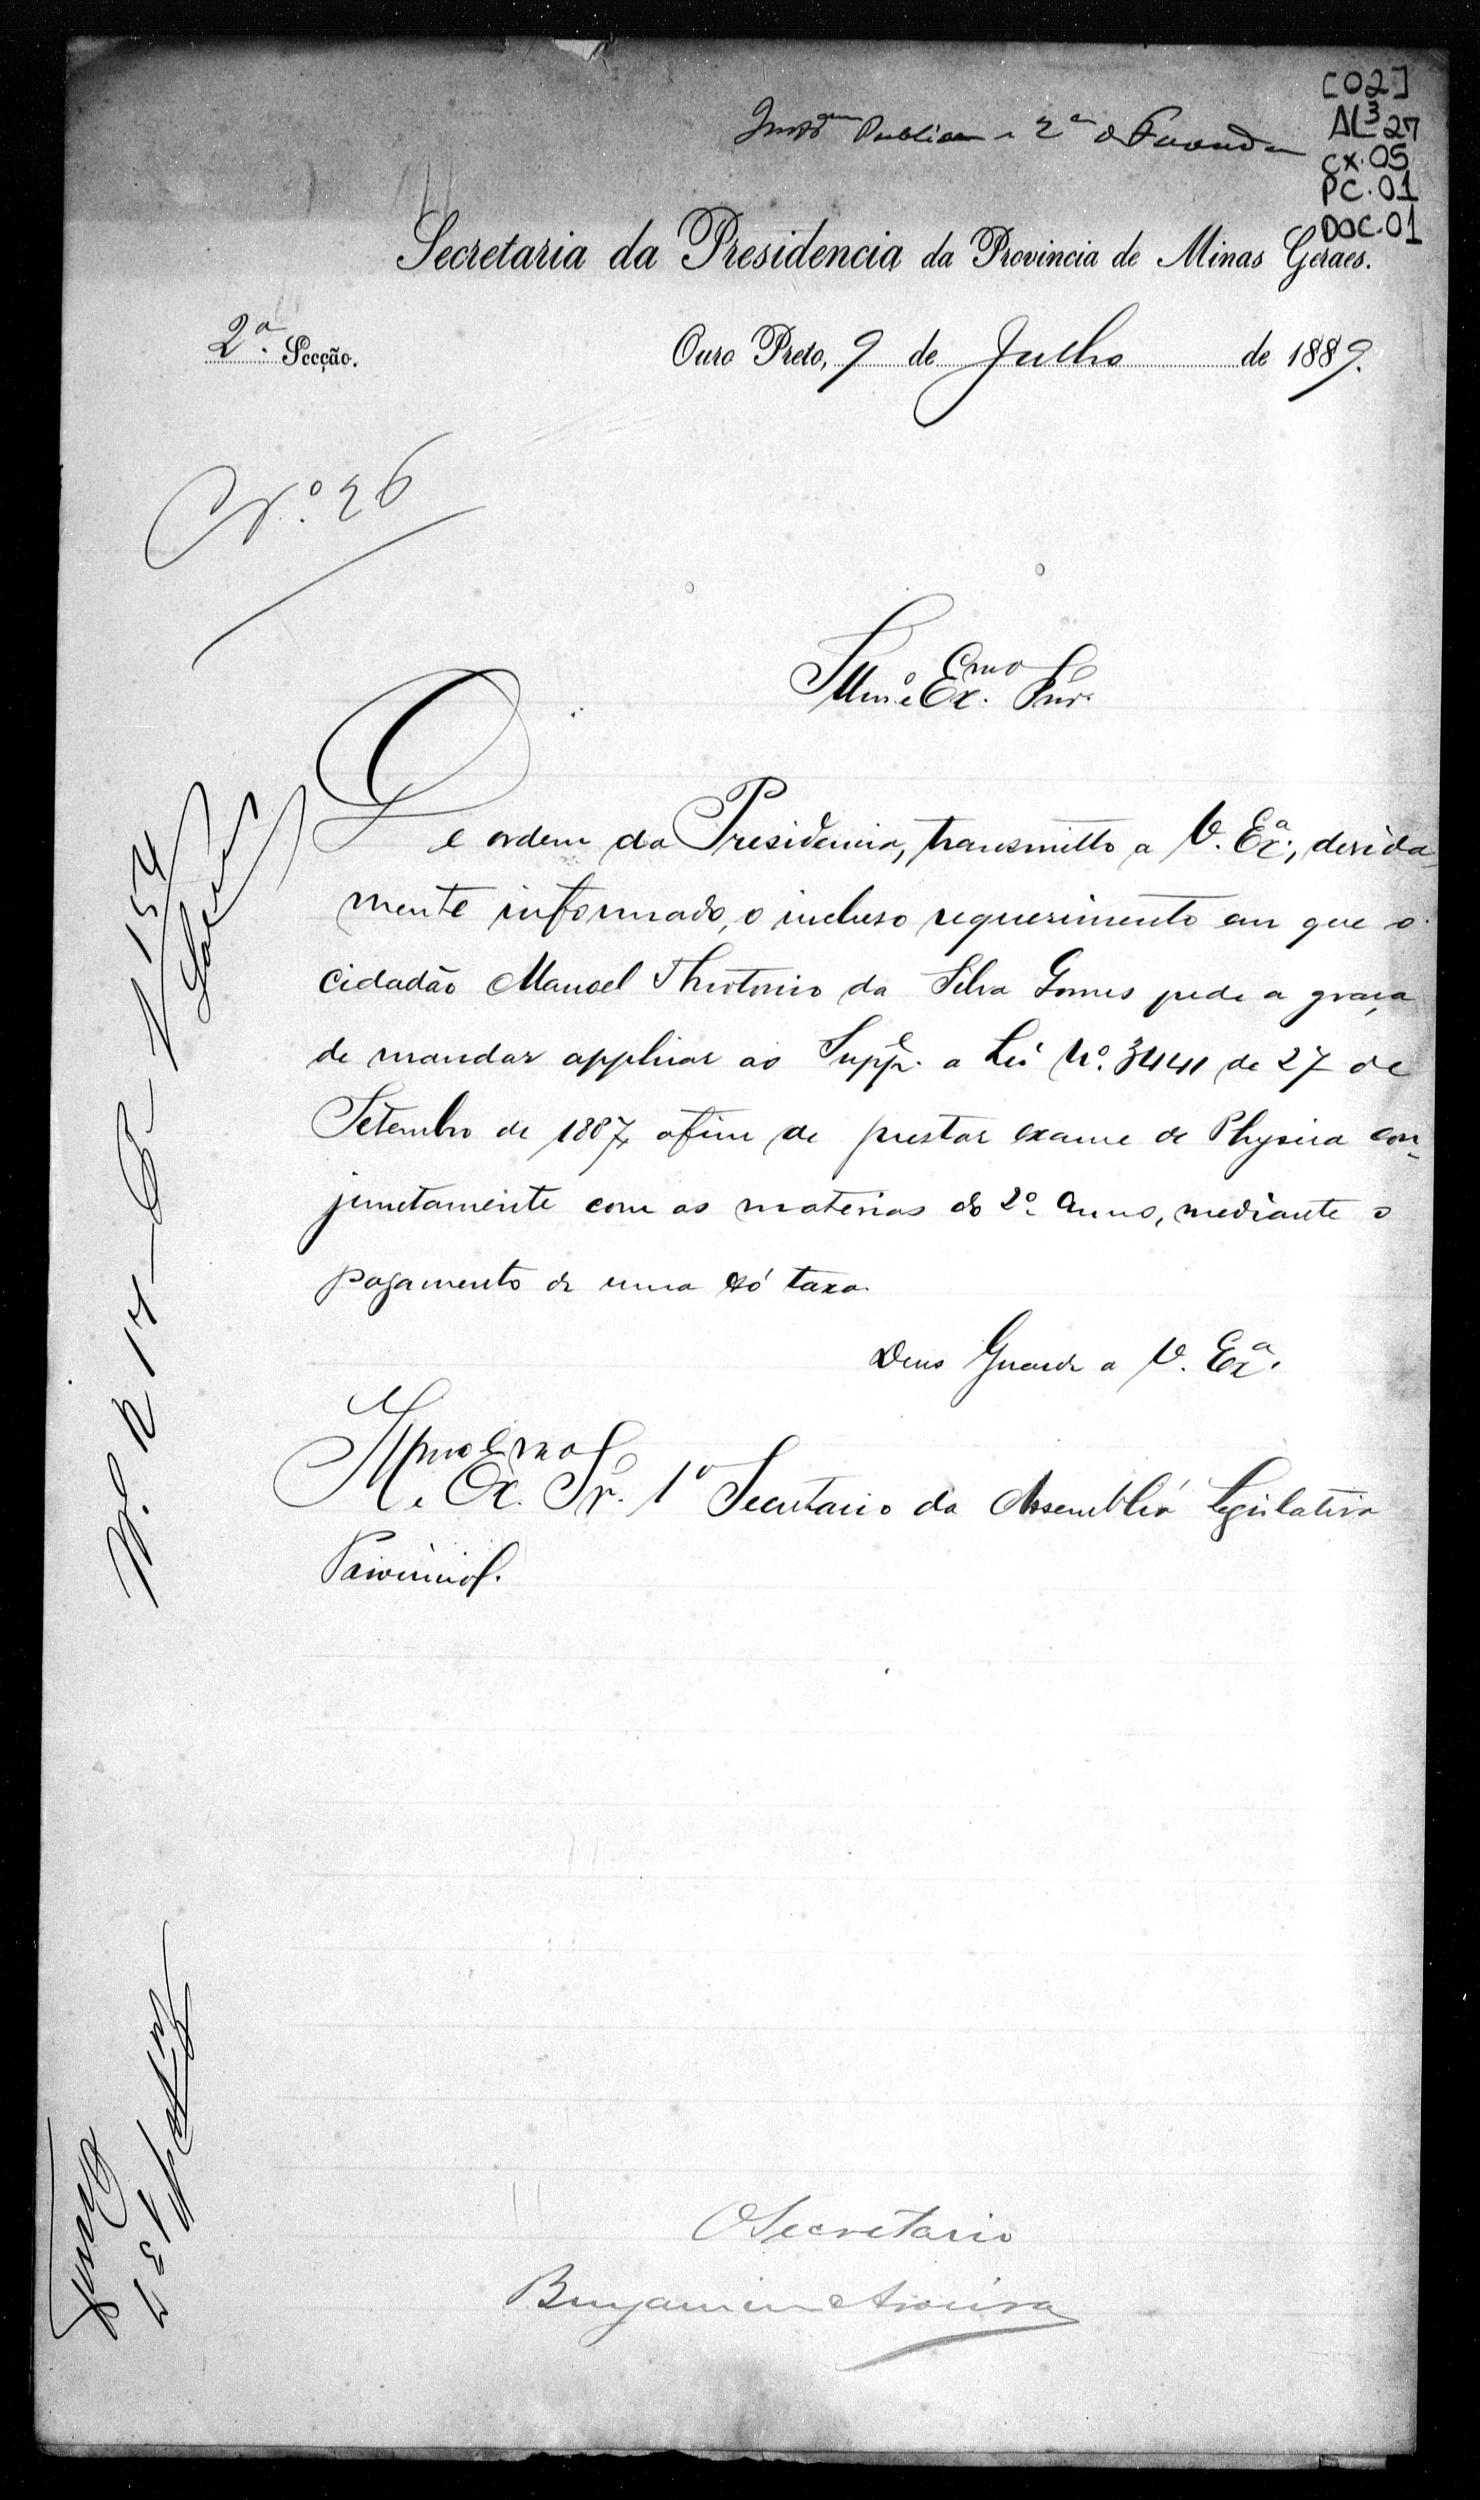 [02]
AL³27
CX.05
PC.01
DOC.01
Publica 2ª
Secretaria da Presidencia da Provincia de Minas Geraes.
2ª Secção.
Ouro Preto, 9 de Julho de 1889.
Nº. 26
Illmº e Exmo. Snr.
De ordem da Presidencia, transmitto a V. Exª., devida
mente informado, o incluso requerimento em que o
cidadão Manoel Theotonio da Silva Gomes pede a graça
de mandar applicar ao Suppe. a Lei Nº. 3441 de 27 de
Setembro de 1887, afim de prestar exame de Physica con-
junctamente com as materias do 2º anno, mediante o
pagamento de uma só taxa.
Deus Guarde a V. Exª.
Illmo e Exmo. Sr. 1º Secretario da Assembléa Legislativa
Provincial.
O Secretario
Benjamin Aroeira